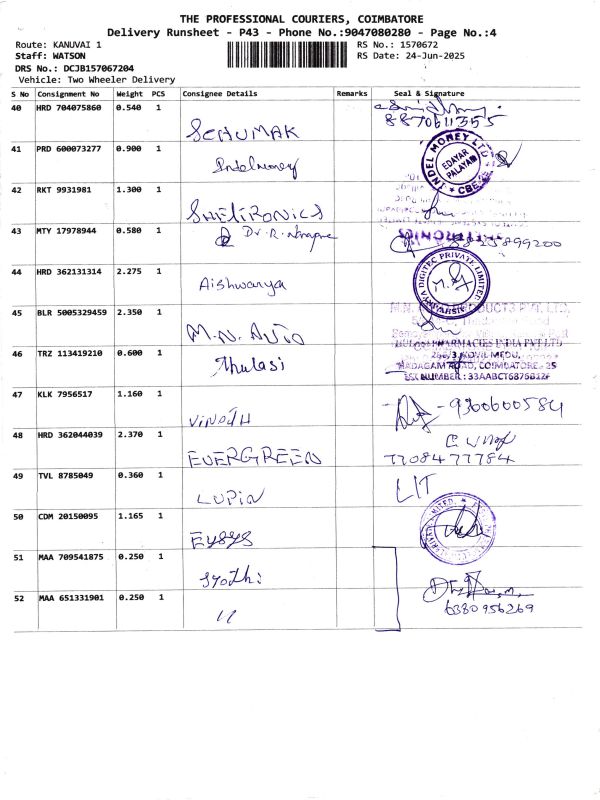 THE PROFESSIONAL COURIERS, COIMBATORE
Delivery Runsheet - P43 - Phone No.:9047080280 - Page No.:4
Route: KANUVAI 1
RS No.: 1570672
Staff: WATSON
RS Date: 24-Jun-2025
DRS No.: DCJB157067204
Vehicle: Two Wheeler Delivery
S No Consignment No Weight PCS Consignee Details Remarks Seal & Signature
40 HRD 704075860 0.540 1
SCHUMAK
8870611355
41 PRD 600073277 0.900 1
Indelmoney
INDEL MONEY LTD
EDAYAR PALAYAM
CBE
42 RKT 9931981 1.300 1
SHELTRONICS
43 MTY 17978944 0.580 1
Dr. R.
44 HRD 362131314 2.275 1
Aishwarya
DIGITEC PRIVATE LIMITED
45 BLR 5005329459 2.350 1
M.N. AUTO
46 TRZ 113419210 0.600 1
Thulasi
PHARMACIES INDIA PVT LTD
266/3 KOVIL MEDU,
COIMBATORE - 25
47 KLK 7956517 1.160 1
VINOTH
9360600584
48 HRD 362044039 2.370 1
EVERGREEN
7708477784
49 TVL 8785049 0.360 1
LUPIN
LIT
50 CDM 20150095 1.165 1
EYSYS
51 MAA 709541875 0.250 1
Jyothi
52 MAA 651331901 0.250 1
11
6380956269